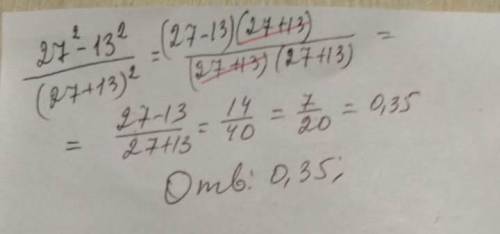 27² - 13² / (27+13)² = (27-13)(27+13) / (27+13)(27+13) =
= 27-13 / 27+13 = 14/40 = 7/20 = 0,35
Отв: 0,35;